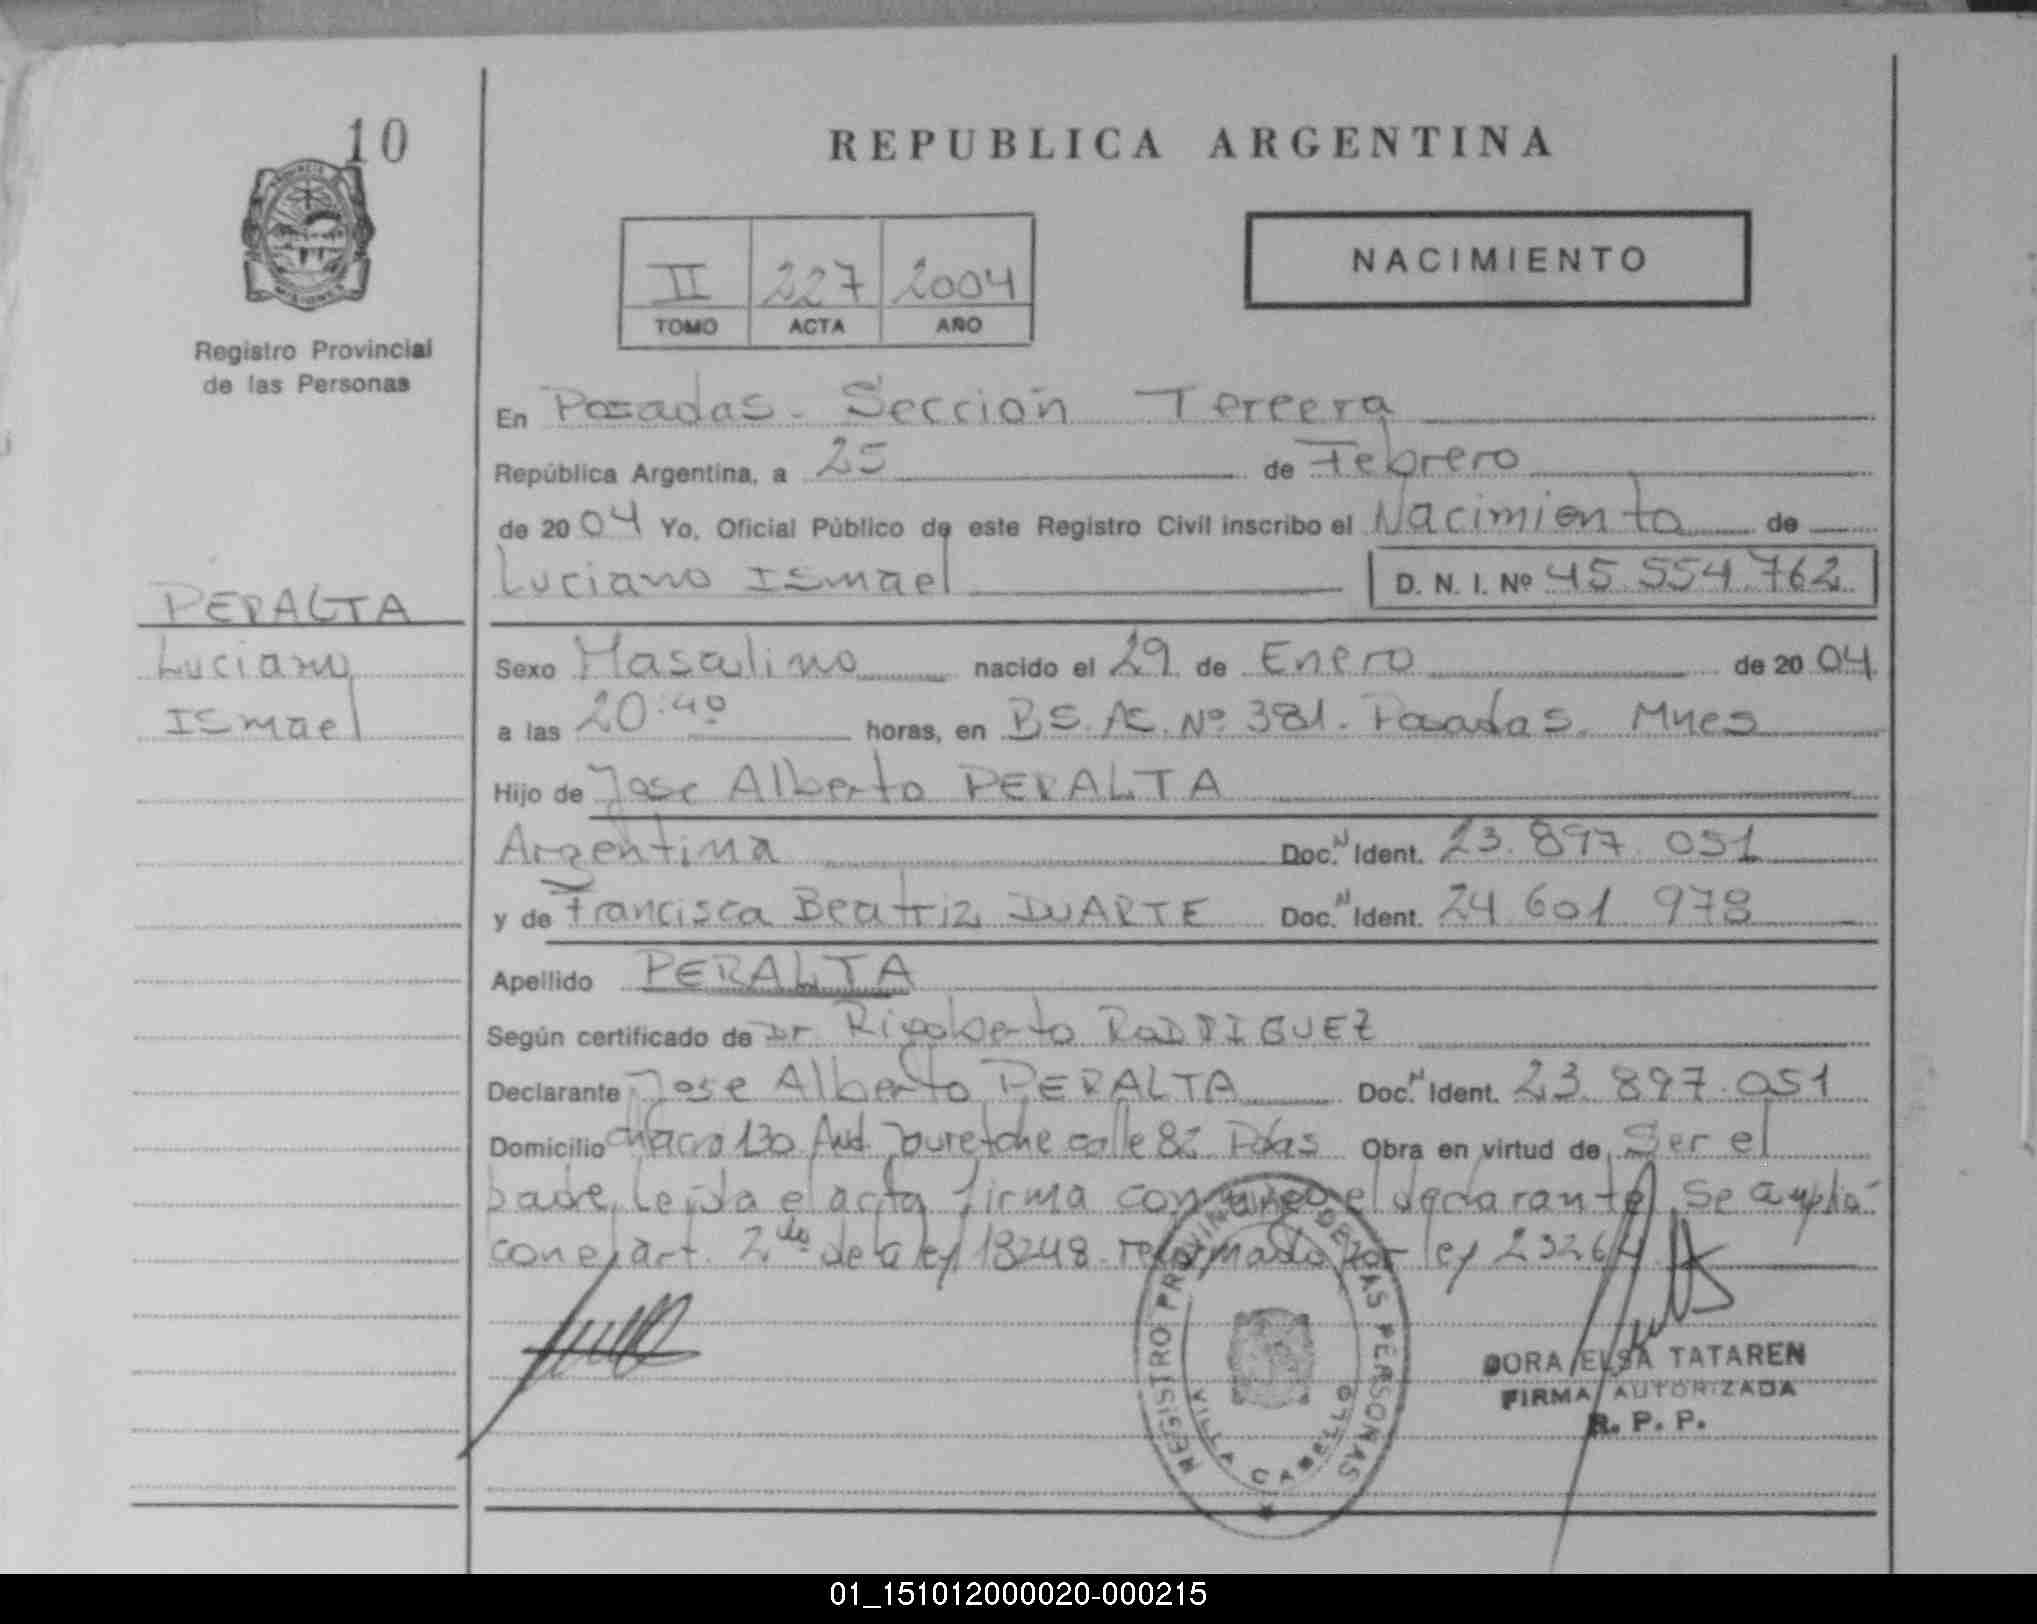 10
REPUBLICA ARGENTINA
NACIMIENTO
II 227 2004
TOMO ACTA AÑO
Registro Provincial
de las Personas
En Posadas - Sección Tercera
República Argentina, a 25 de Febrero
de 20 04 Yo, Oficial Público de este Registro Civil inscribo el Nacimiento de
Luciano Ismael D. N. I. Nº 45.554.762
PERALTA
Luciano
Ismael
Sexo Masculino nacido el 29 de Enero de 20 04
a las 20:40 horas, en BS. AS. Nº 381. Posadas. Mnes
Hijo de Jose Alberto PERALTA
Argentina Doc. N Ident. 23.897.051
y de Francisca Beatriz DUARTE Doc. N Ident. 24 601 978
Apellido PERALTA
Según certificado de Dr. Rigoberto RODRIGUEZ
Declarante Jose Alberto PERALTA Doc. N Ident. 23.897.051
Domicilio chacra 130 Aud. Jauretche calle 82 Pdas Obra en virtud de Ser el
padre, leida el acta firma conmigo el declarante, se amplia
con el art. 2do de la ley 18248 reformado por ley 23264
REGISTRO PROVINCIAL DE LAS PERSONAS
VILLA CABELLO
DORA ELSA TATAREN
FIRMA AUTORIZADA
R. P. P.
01_151012000020-000215